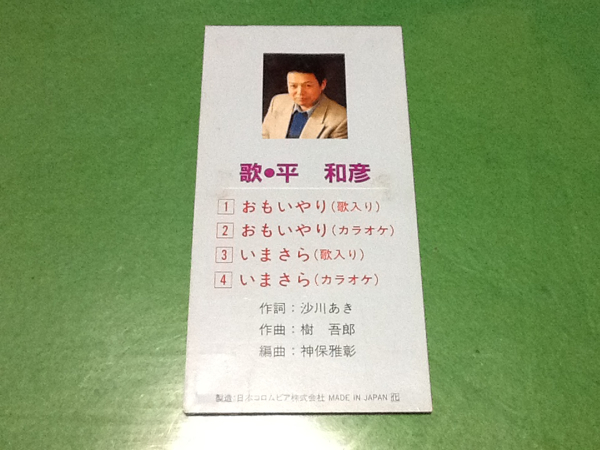 歌●平 和彦
1 おもいやり(歌入り)
2 おもいやり(カラオケ)
3 いまさら(歌入り)
4 いまさら(カラオケ)
作詞：沙川あき
作曲：樹 吾郎
編曲：神保雅彰
製造：日本コロムビア株式会社 MADE IN JAPAN